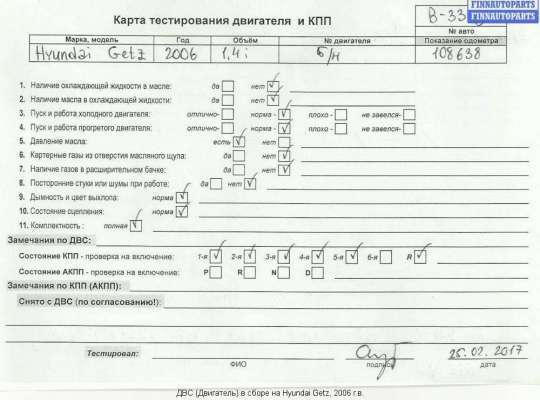 FINNAUTOPARTS
FINNAUTOPARTS
Карта тестирования двигателя и КПП
В-33
№ авто
Марка, модель Год Объём № двигателя Показание одометра
Hyundai Getz 2006 1,4i б/н 108638
1. Наличие охлаждающей жидкости в масле: да нет
2. Наличие масла в охлаждающей жидкости: да нет
3. Пуск и работа холодного двигателя: отлично- норма - плохо - не завелся-
4. Пуск и работа прогретого двигателя: отлично- норма - плохо - не завелся-
5. Давление масла: есть нет
6. Картерные газы из отверстия масляного щупа: да нет
7. Наличие газов в расширительном бачке: да нет
8. Посторонние стуки или шумы при работе: да нет
9. Дымность и цвет выхлопа: норма
10. Состояние сцепления: норма
11. Комплектность : полная
Замечания по ДВС:
Состояние КПП - проверка на включение: 1-я 2-я 3-я 4-я 5-я 6-я R
Состояние АКПП - проверка на включение: P R N D
Замечания по КПП (АКПП):
Снято с ДВС (по согласованию!):
Тестировал: 25.02.2017
ФИО подпись дата
ДВС (Двигатель) в сборе на Hyundai Getz, 2006 г.в.